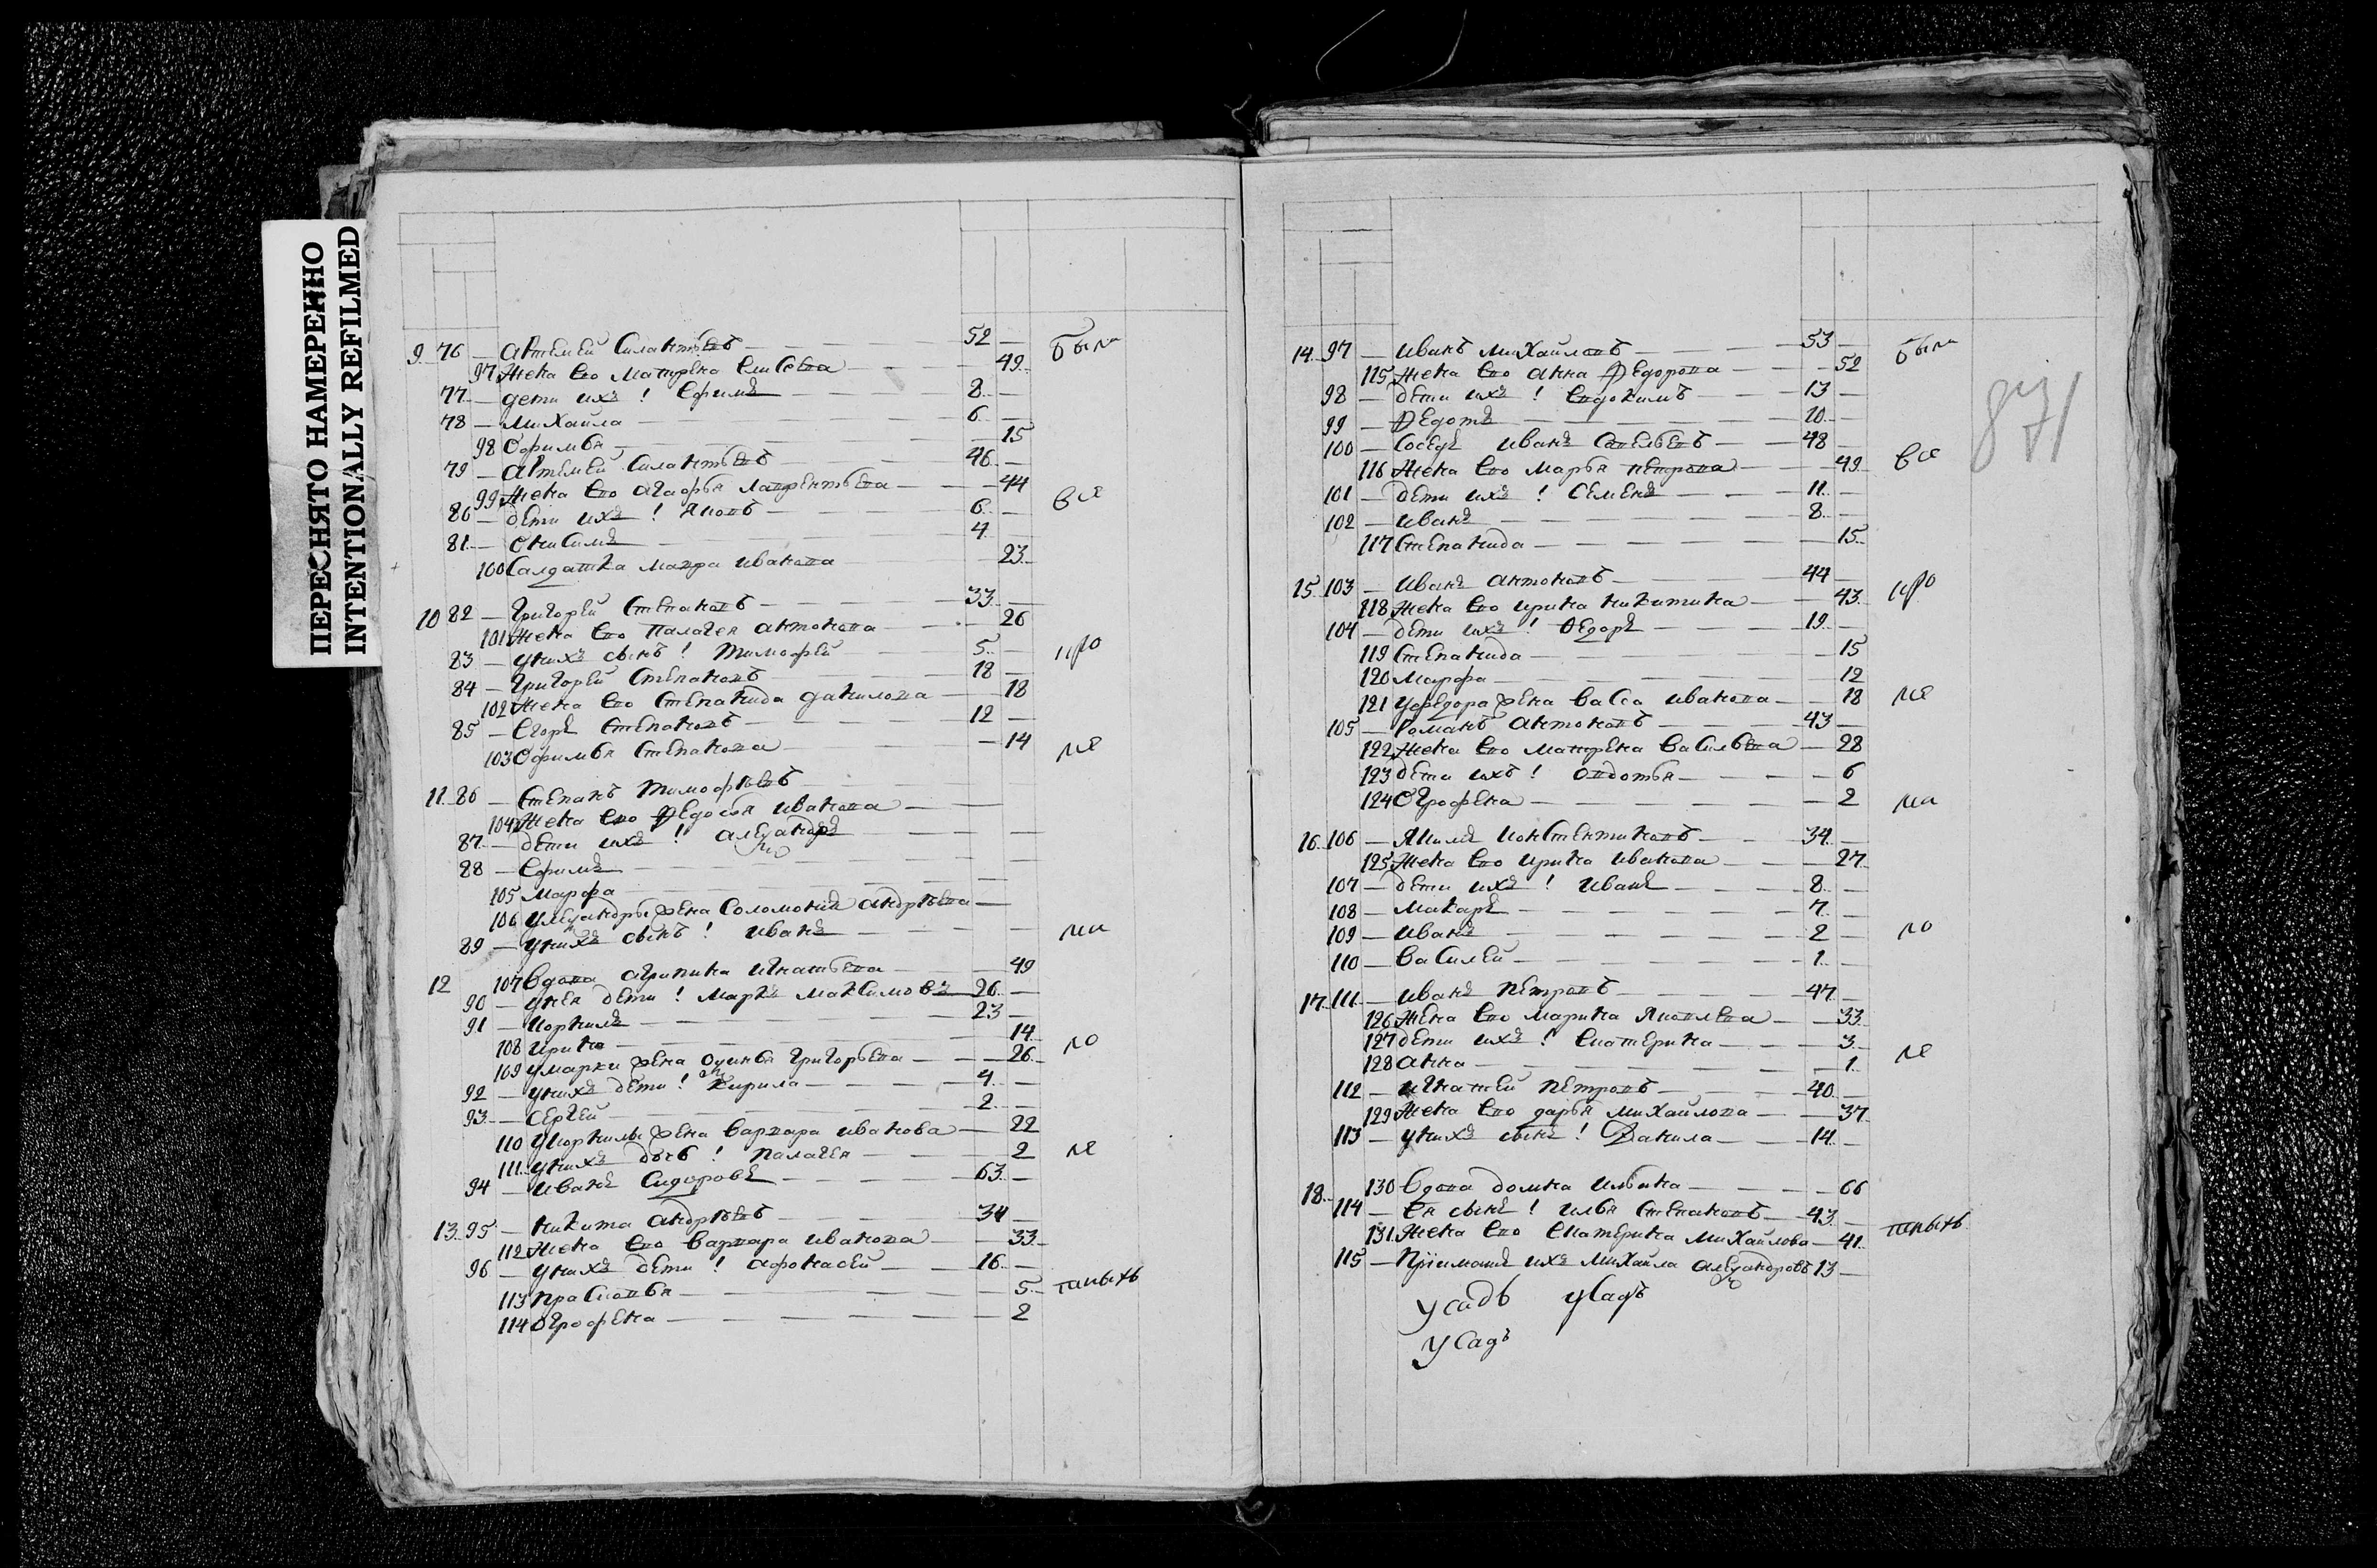 ПЕРЕСНЯТО НАМЕРЕННО
INTENTIONALLY REFILMED
9 76 — Артемей Силантьевъ — 52 — были
97 жена ево Матрена Елисеева — 49
77 — дети ихъ: Ефимъ — 8 —
78 — Михайла — 6 —
98 Офимья — 15
79 — Артемей Силантьевъ — 46 —
99 жена ево Агафья Лаврентьева — 44 все
80 — дети ихъ: Яковъ — 6 —
81 — Онисимъ — 4
100 Салдатка Мавра Иванова — 23
10 82 — Григорей Степановъ — 33 —
101 жена ево Палагея Антонова — 26
83 — у нихъ сынъ: Тимофей — 5 —
84 — Григорей Степановъ — 18 —
102 жена ево Степанида Данилова — 18
85 — Егоръ Степановъ — 12 —
103 Офимья Степанова — 14
11 86 — Степанъ Тимофѣевъ —
104 жена ево Федосья Иванова —
87 — дети ихъ: Александръ —
88 — Ефимъ —
105 Марфа —
106 у Александры жена Соломония Андрѣева —
89 — у нихъ сынъ: Иванъ —
12 107 вдова Агрипина Игнатьева — 49
90 — у нея дети: Маркъ Максимовъ 26 —
91 — Корнилъ — 23 —
108 Ирина — 14
109 у Марки жена Григорьева — 26
92 — у нихъ дети: Кирила — 4 —
93 — Сергей — 2 —
110 у Корнилы жена Варвара Иванова — 22
111 у нихъ дочь: Палагея — 2
94 — Иванъ Сидоровъ — 63 —
13 95 — Никита Андрѣевъ — 34
112 жена ево Варвара Иванова — 33
96 — у нихъ дети: Афонасей — 16 —
113 Прасковья — 5
114 Огрофена — 2
871
14 97 — Иванъ Михайловъ — 53 — были
115 жена ево Анна Федорова — 52
98 — дети ихъ: Евдокимъ — 13 —
99 — Федотъ — 10 —
100 — Соседъ Иванъ Савельевъ — 48 —
116 жена ево Марья Петрова — 49 все
101 — дети ихъ: Семенъ — 11 —
102 — Иванъ — 8 —
117 Степанида — 15
15 103 — Иванъ Антоновъ — 44 —
118 жена ево Ирина Никитина — 43
104 — дети ихъ: Федоръ — 19 —
119 Степанида — 15
120 Марфа — 12
121 у Федора жена Васса Иванова — 18
105 — Романъ Антоновъ — 43 —
122 жена ево Матрена Васильева — 28
123 дети ихъ: Овдотья — 6
124 Огрофена — 2
16 106 — — 34 —
125 жена ево Ирина Иванова — 27
107 — дети ихъ: Иванъ — 8 —
108 — Макаръ — 7 —
109 — Иванъ — 2 —
110 — Василей — 1 —
17 111 — Иванъ Петровъ — 47 —
126 жена ево Марина Яковлева — 33
127 дети ихъ: Екатерина — 3
128 Анна — 1
112 — Игнатей Петровъ — 40 —
129 жена ево Дарья Михайлова — 37
113 — у нихъ сынъ: Данила — 14 —
18 130 вдова Домна Ильина — 66
114 — ея сынъ: Илья Степановъ — 43 —
131 жена ево Екатерина Михайлова — 41
115 — Приимышъ ихъ Михайла Александровъ 13 —
усадь усадъ
усадъ